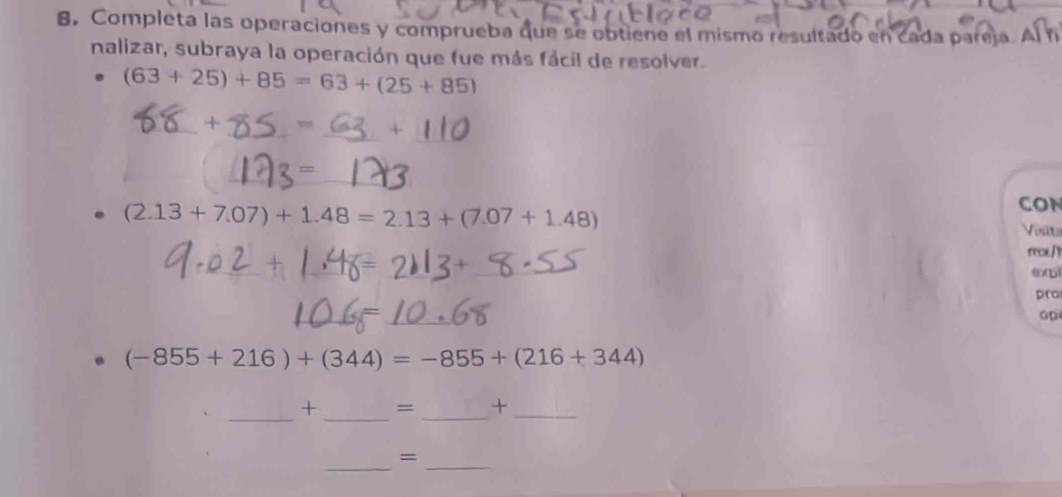 8. Completa las operaciones y comprueba que se obtiene el mismo resultado en cada pareja. Al
nalizar, subraya la operación que fue más fácil de resolver.
• (63 + 25) + 85 = 63 + (25 + 85)
88 + 85 = 63 + 110
173 = 173
• (2.13 + 7.07) + 1.48 = 2.13 + (7.07 + 1.48)
9.02 + 1.48 = 2.13 + 8.55
10.68 = 10.68
• (-855 + 216 ) + (344) = -855 + (216 + 344)
____ + ____ = ____ + ____
____ = ____
CON
Visit
mx/
expl
pro
op